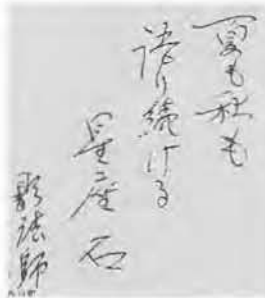 夏も秋も
語り続ける
星座石
影法師